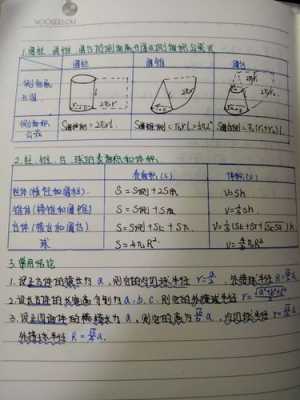 1.圆柱、圆锥、圆台的侧面展开图及侧面积公式
圆柱 圆锥 圆台
侧面展开图
2πr l 2πr l
侧面积公式 S圆柱侧=2πrl S圆锥侧=πrl S圆台侧=π(r₁+r₂)l
2.柱、锥、台、球的表面积和体积
表面积(S) 体积(V)
柱体(棱柱和圆柱) S=S侧+2S底 V=Sh
锥体(棱锥和圆锥) S=S侧+S底 V=⅓Sh
台体(棱台和圆台) S=S侧+S上+S下 V=⅓(S上+S下+√S上S下)h
球 S=4πR² V=4/3πR³
3.常用结论
1.设正方体的棱长为a,则它的内切球半径r=a/2,外接球半径R=√3/2a
2.设长方体的长宽高分别为a、b、c,则它的外接球半径r=√(a²+b²+c²)/2
3.设正四面体的棱长为a,则它的高为√6/3a,内切球半径r=√6/12a
外接球半径R=√6/4a.